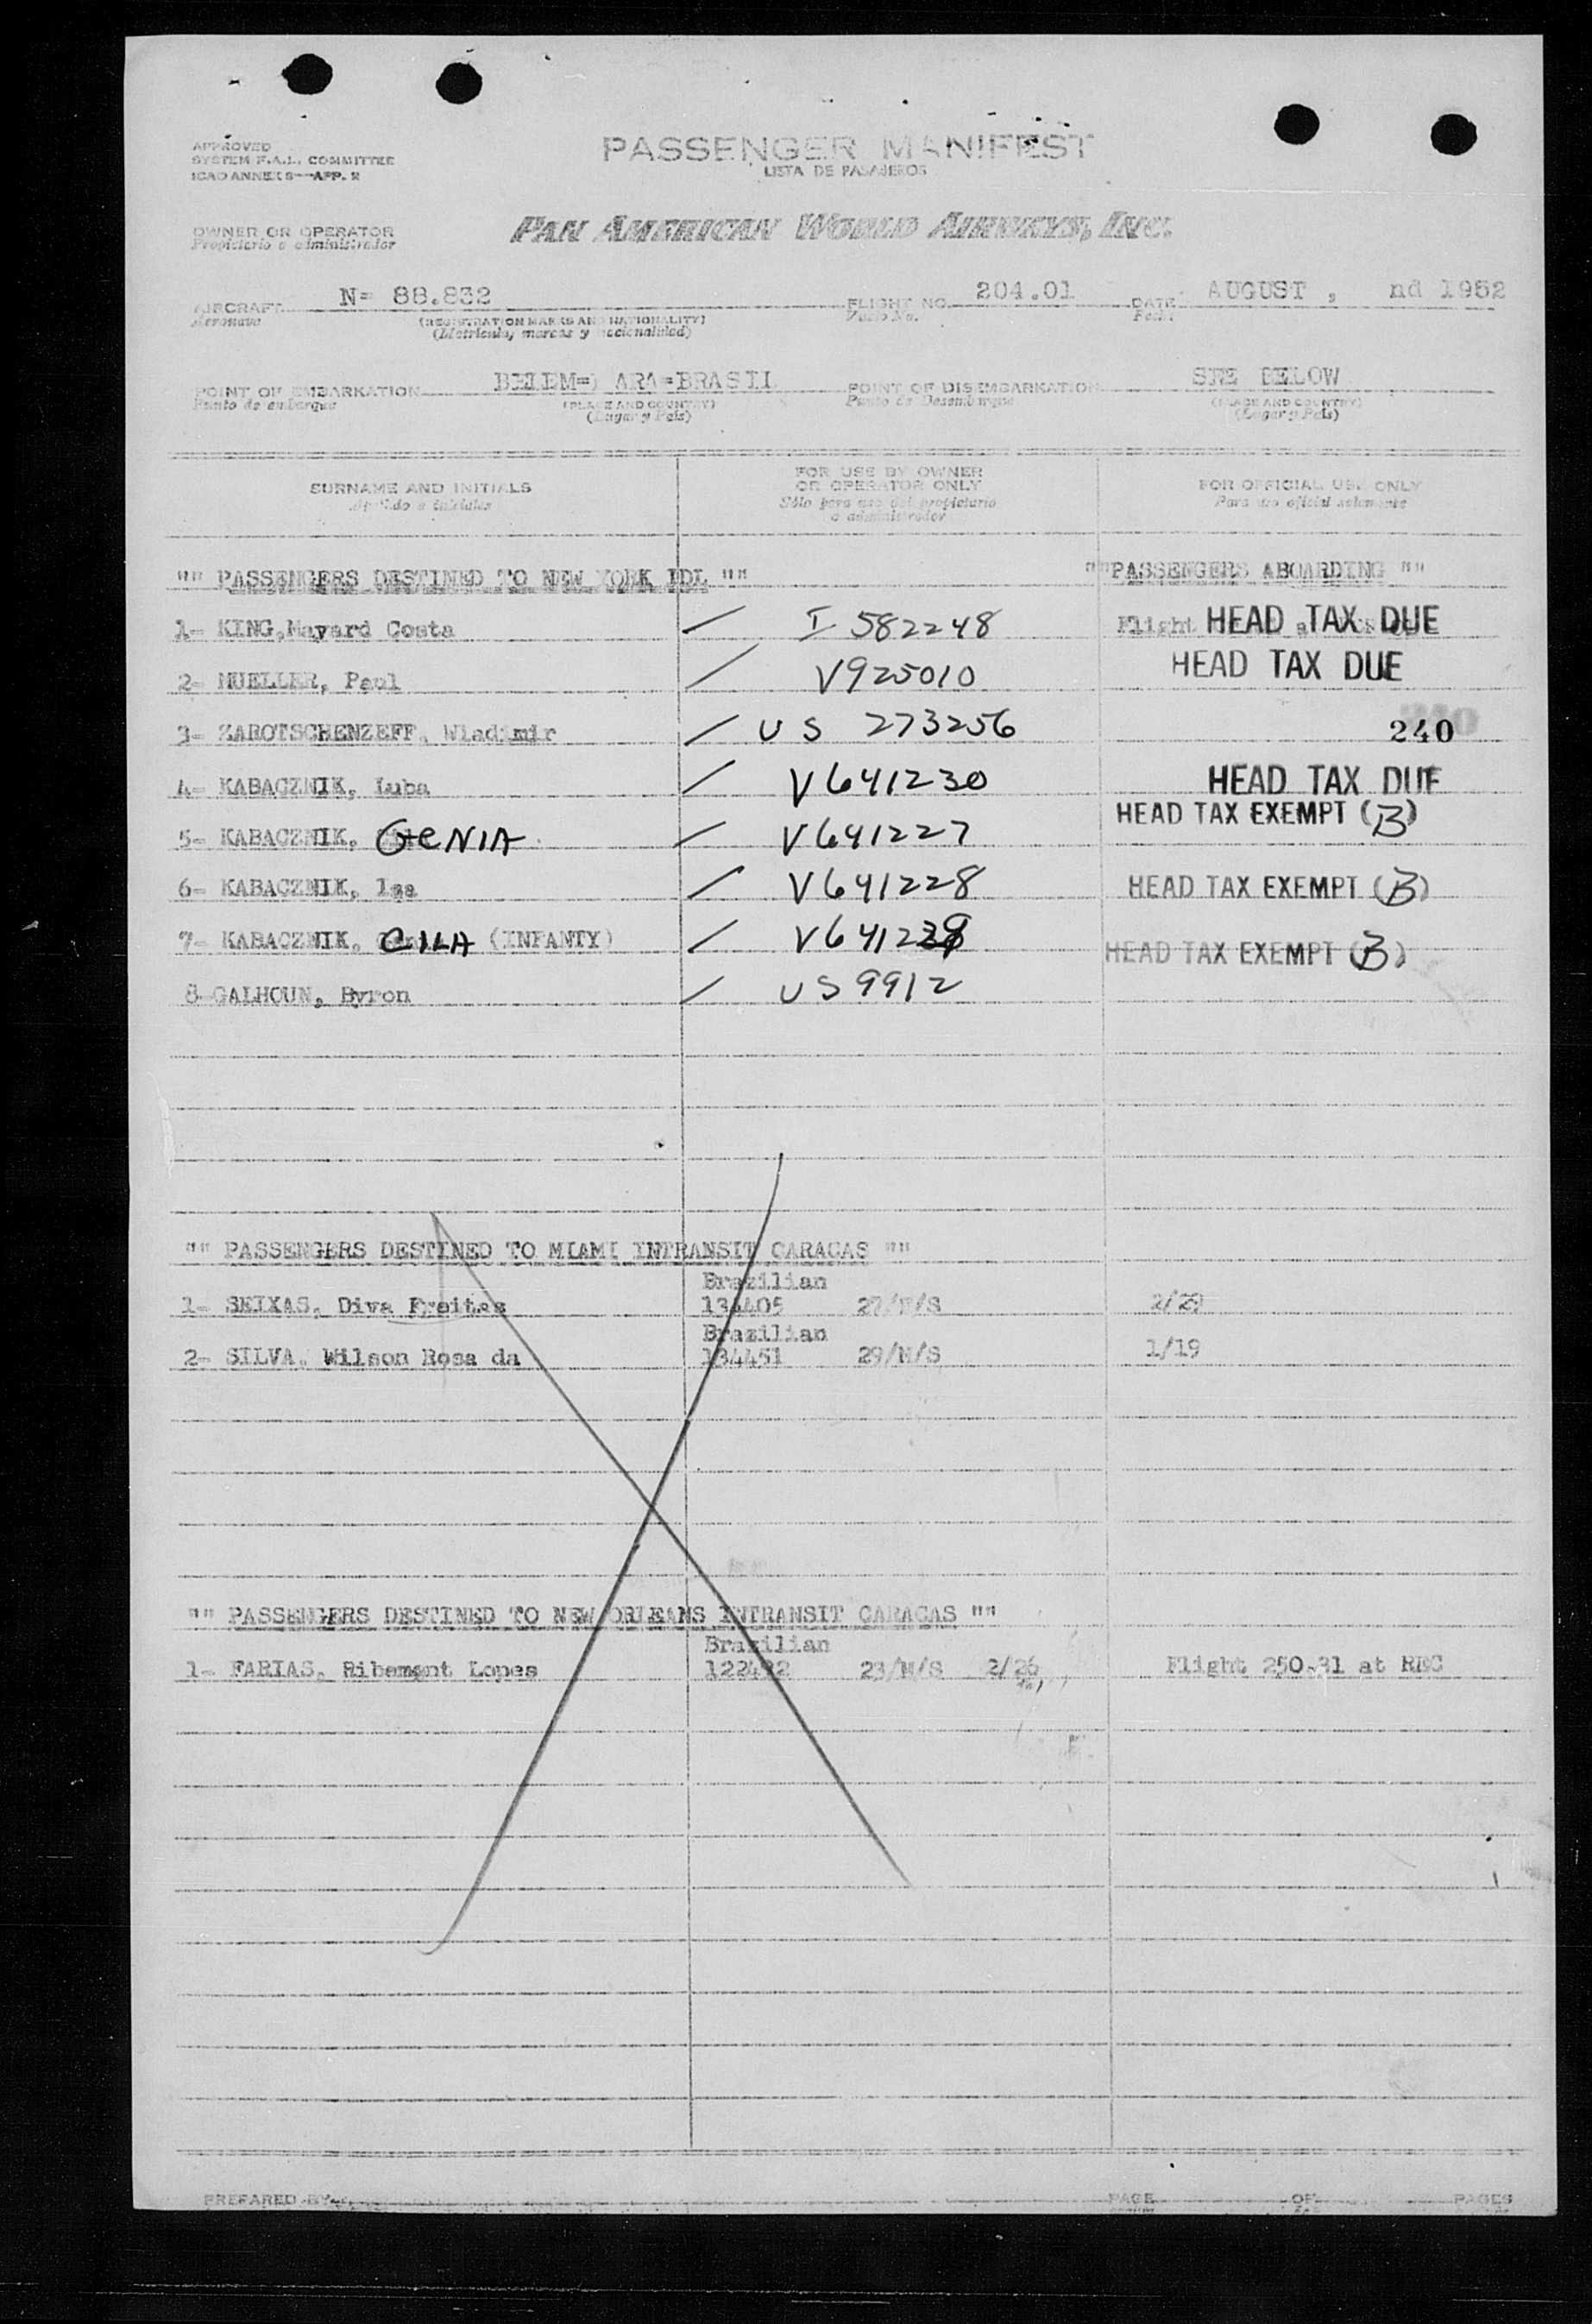 APPROVED
SYSTEM F.A.L. COMMITTEE
ICAO ANNEX 9—APP. 2
PASSENGER MANIFEST
LISTA DE PASAJEROS
OWNER OR OPERATOR
Propietario o administrador
PAN AMERICAN WORLD AIRWAYS, INC.
AIRCRAFT N= 88.832 FLIGHT NO. 204.01 DATE AUGUST , nd 1952
Aeronave (REGISTRATION MARKS AND NATIONALITY) Vuelo No. Fecha
(Matricula, marcas y nacionalidad)
POINT OF EMBARKATION BELEM= ARA=BRASIL POINT OF DISEMBARKATION SEE BELOW
Punto de embarque (PLACE AND COUNTRY) Punto de Desembarque (PLACE AND COUNTRY)
(Lugar y País) (Lugar y País)
SURNAME AND INITIALS FOR USE BY OWNER OR OPERATOR ONLY FOR OFFICIAL USE ONLY
Apellido e iniciales Sólo para uso del propietario o administrador Para uso oficial solamente
"" PASSENGERS DESTINED TO NEW YORK IDL "" ""PASSENGERS ABOARDING ""
1- KING,Mayard Costa / I 582248 Flight HEAD TAX DUE
2- MUELLER, Paul / V925010 HEAD TAX DUE
3- ZAROTSCHENZEFF, Wladimir / US 273256 240
4- KABACZNIK, Luba / V641230 HEAD TAX DUE
5- KABACZNIK, GENIA / V641227 HEAD TAX EXEMPT (B)
6- KABACZNIK, Isa / V641228 HEAD TAX EXEMPT (B)
7- KABACZNIK, CILA (INFANTY) / V641229 HEAD TAX EXEMPT (B)
8-GALHOUN, Byron / US 9912
"" PASSENGERS DESTINED TO MIAMI INTRANSIT CARACAS ""
Brazilian
1- SEIXAS, Diva Freitas 134405 27/F/S 2/29
Brazilian
2- SILVA, Wilson Rosa da 134451 29/M/S 1/19
"" PASSENGERS DESTINED TO NEW ORLEANS INTRANSIT CARACAS ""
Brazilian
1- FARIAS, Ribemont Lopes 23/M/S 2/26 Flight 250.31 at REC
PREPARED BY PAGE OF PAGES